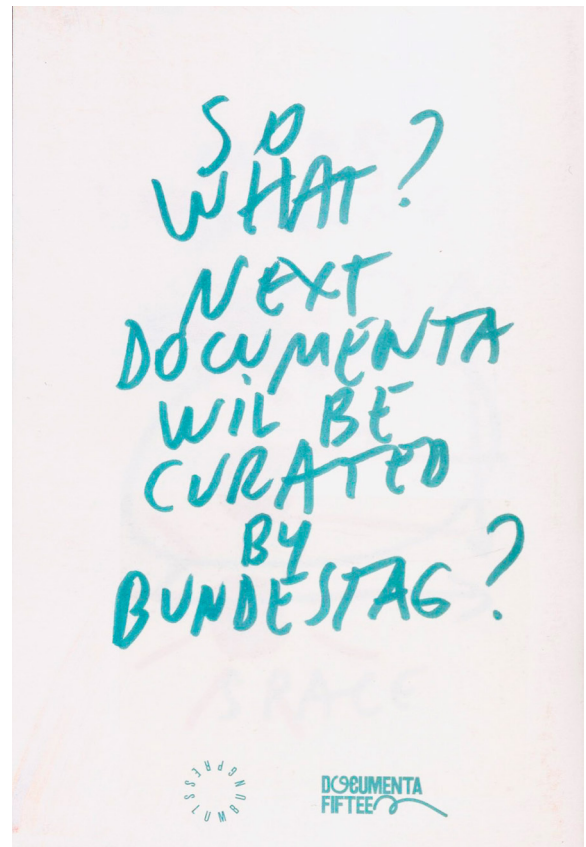 SO
WHAT?
NEXT
DOCUMENTA
WIL BE
CURATED
BY
BUNDESTAG?
LUMBUNGPRESS
DOCUMENTA
FIFTEEN